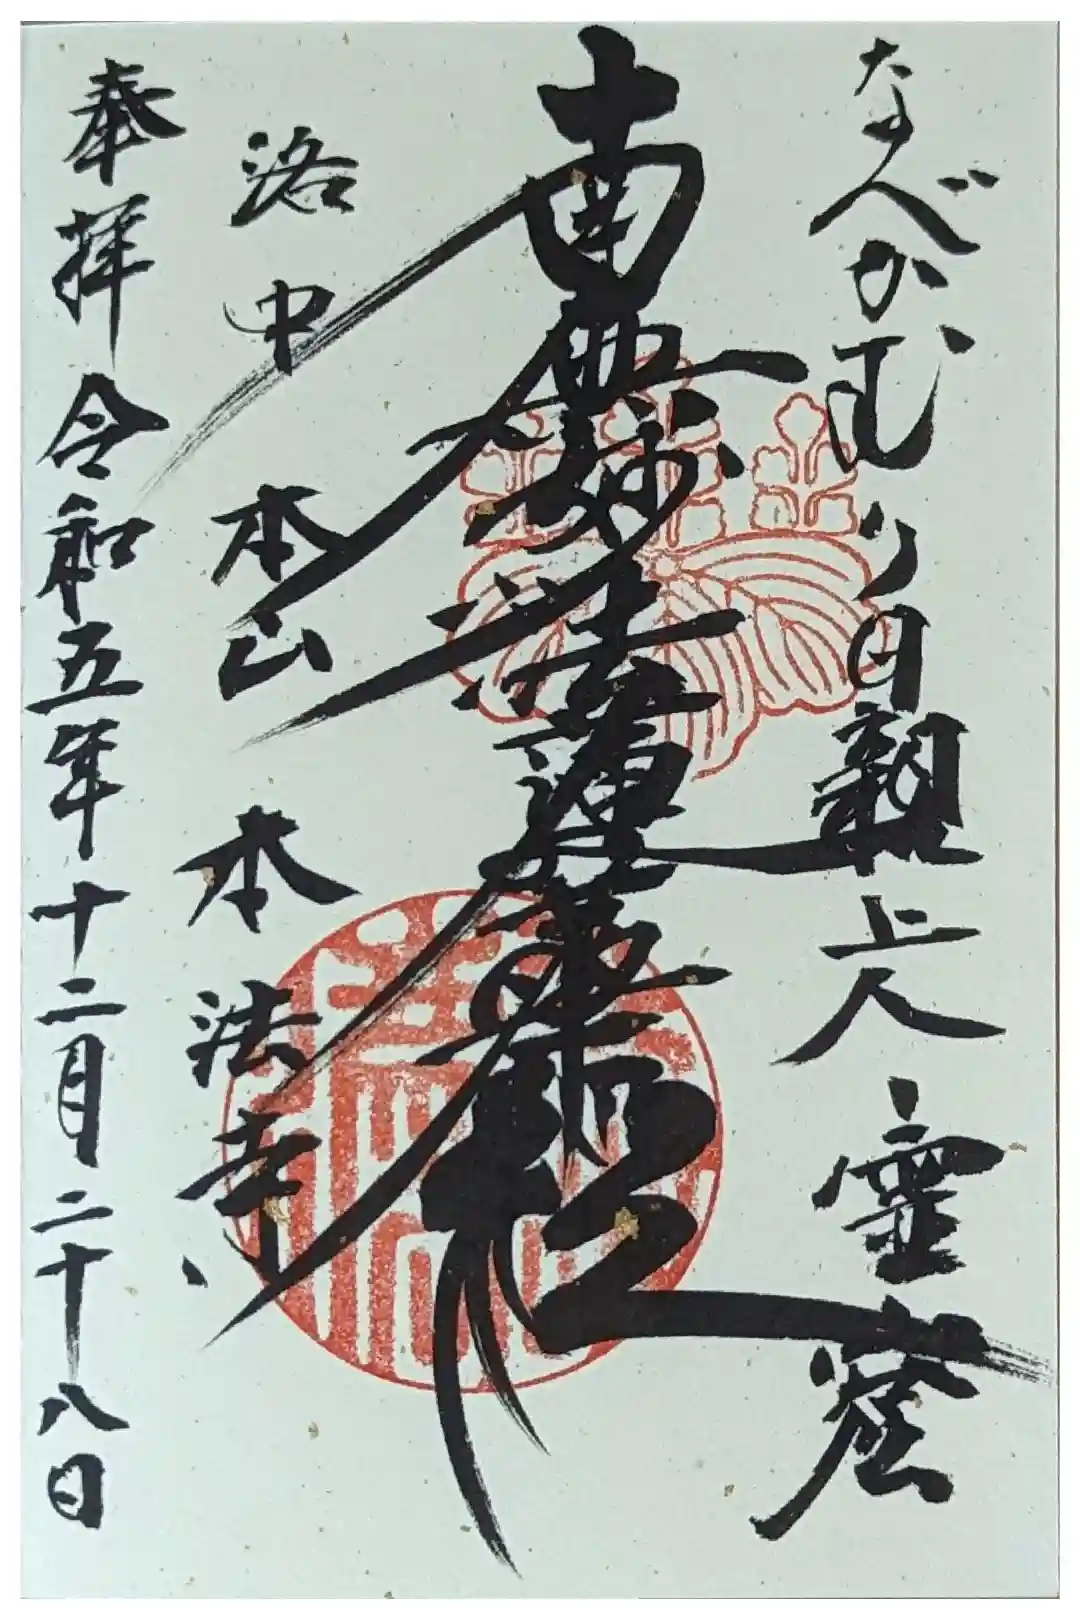 なべかむり日親上人 霊窟
南無妙法蓮華経
洛中 本山 本法寺
奉拝 令和五年十二月二十八日